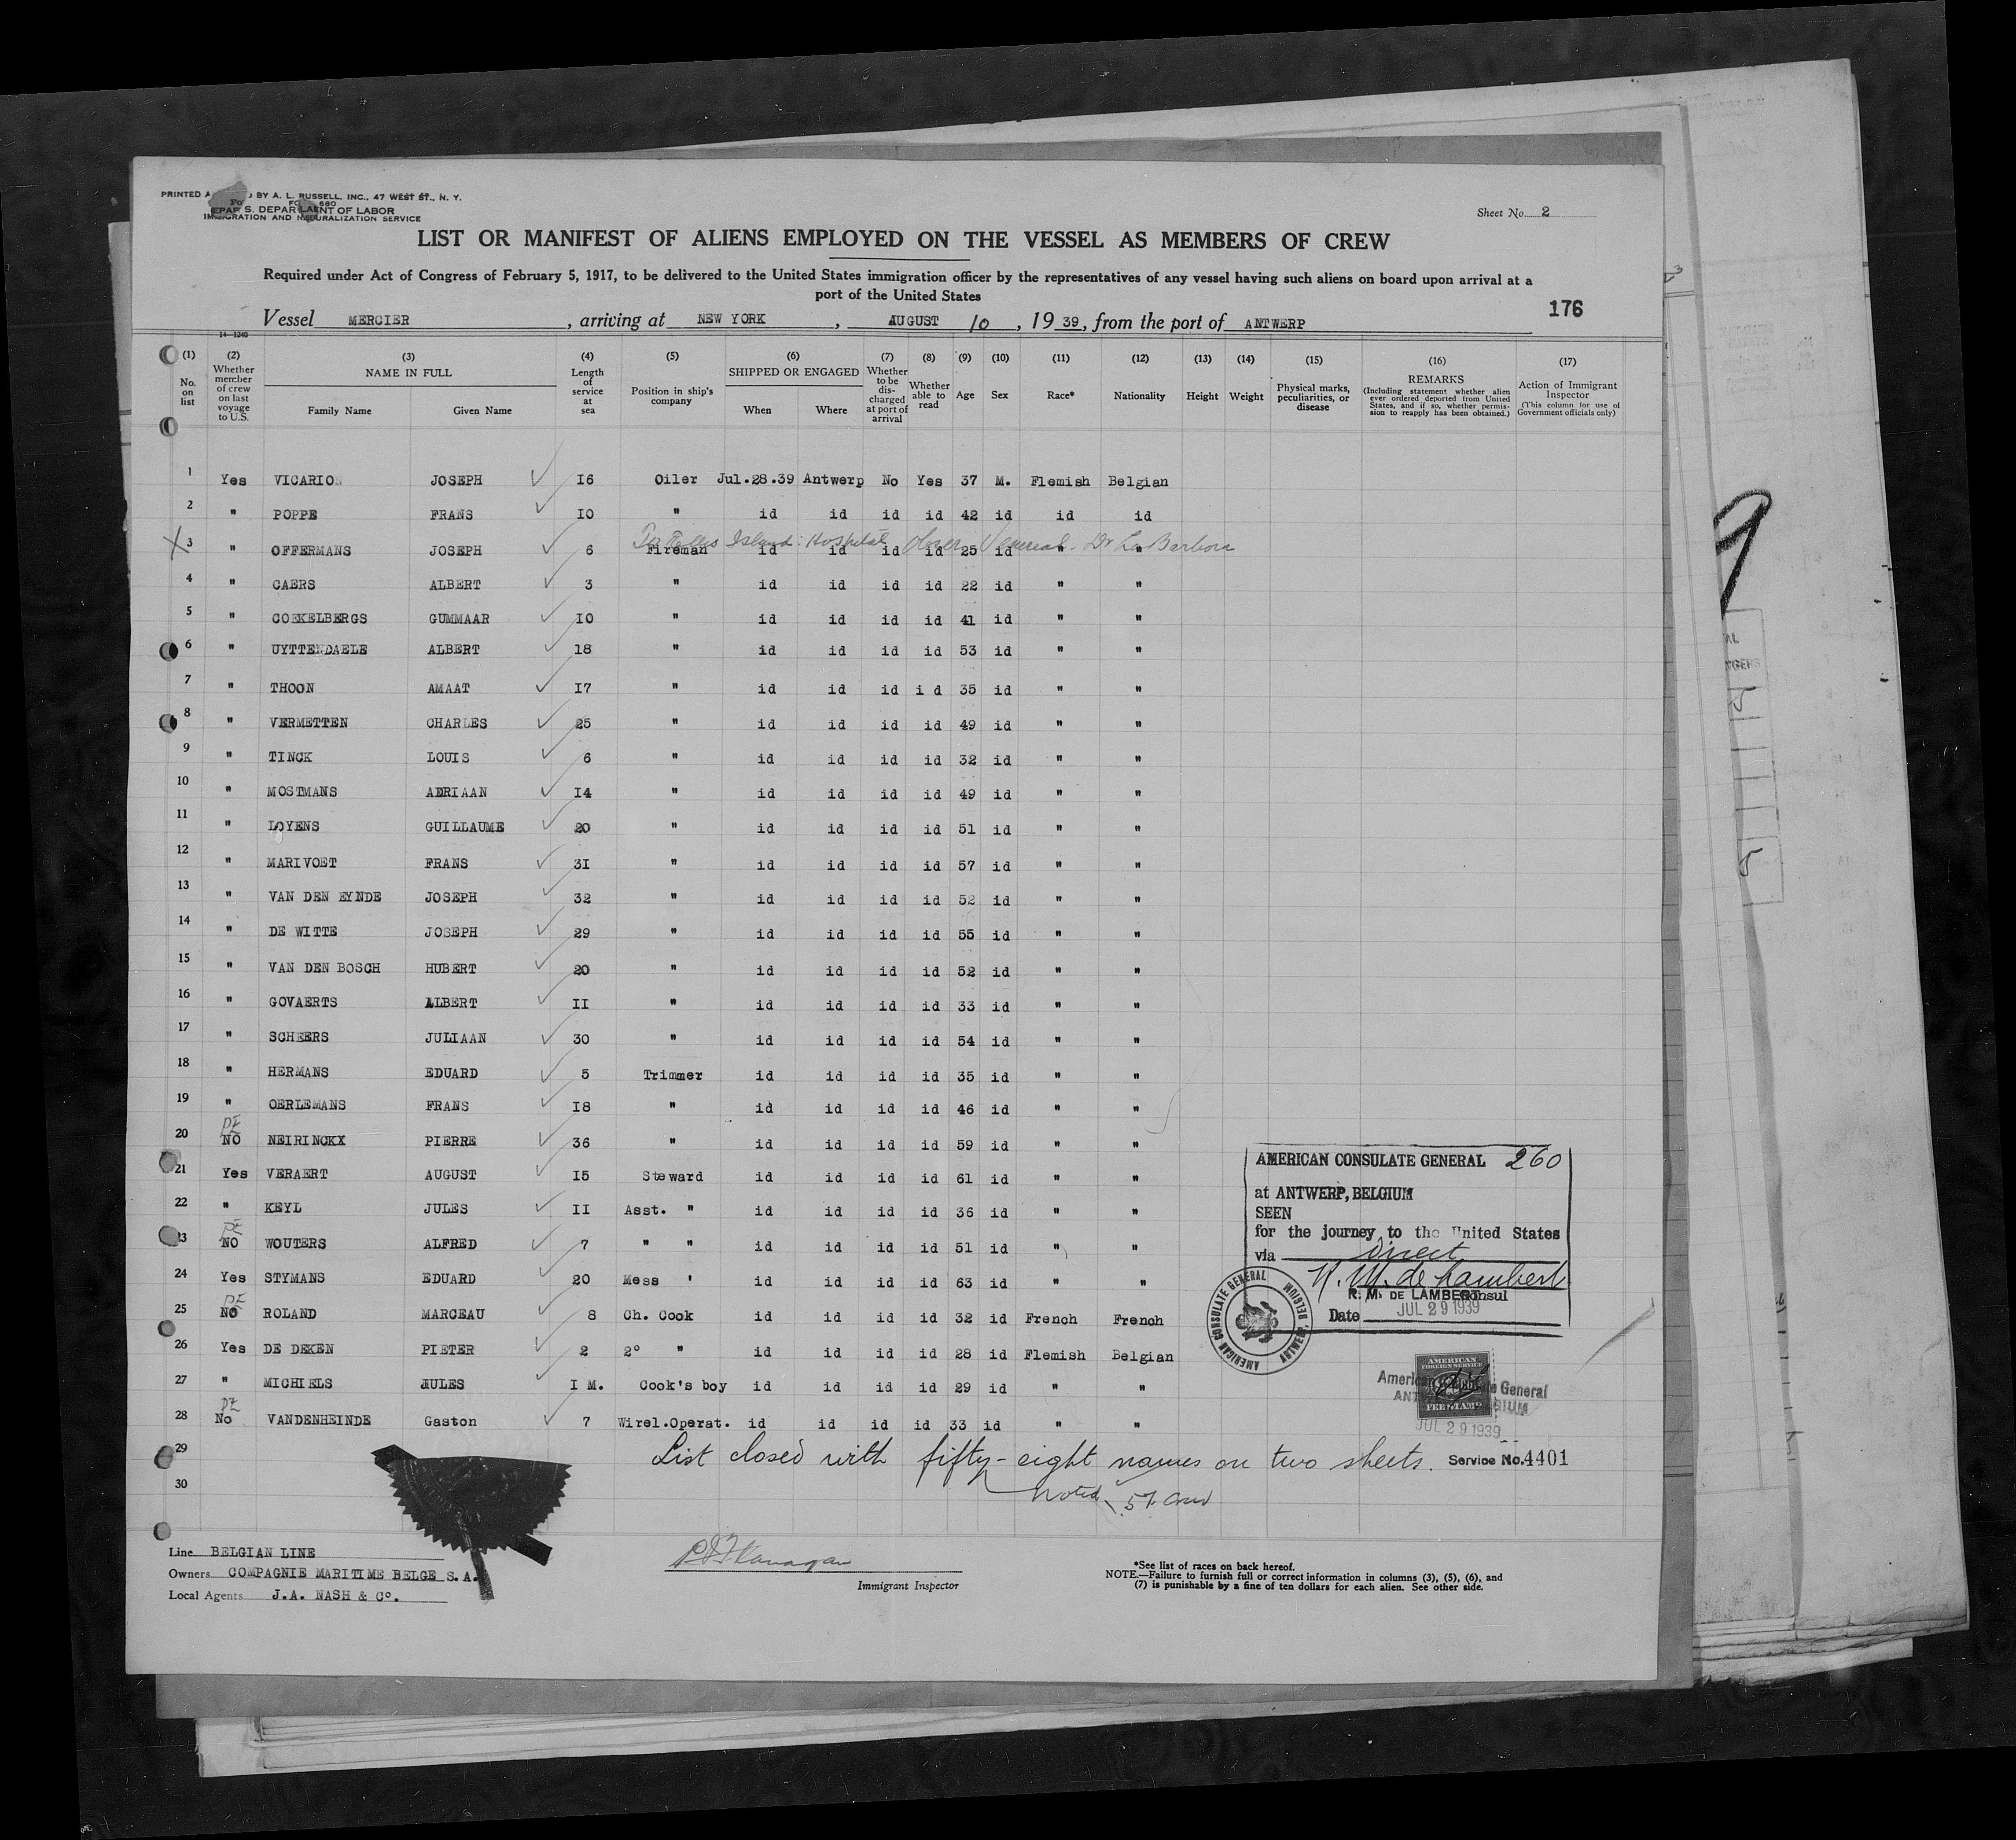 PRINTED A BY A. L. RUSSELL, INC., 47 WEST ST., N. Y.
680
S. DEPAR ENT OF LABOR
IMMIGRATION AND NATURALIZATION SERVICE
Sheet No. 2
LIST OR MANIFEST OF ALIENS EMPLOYED ON THE VESSEL AS MEMBERS OF CREW
Required under Act of Congress of February 5, 1917, to be delivered to the United States immigration officer by the representatives of any vessel having such aliens on board upon arrival at a
port of the United States
176
Vessel MERCIER, arriving at NEW YORK, AUGUST 10, 19 39, from the port of ANTWERP
14—1240
(1) (2) (3) (4) (5) (6) (7) (8) (9) (10) (11) (12) (13) (14) (15) (16) (17)
No. on list
Whether member of crew on last voyage to U.S.
NAME IN FULL
Family Name Given Name
Length of service at sea
Position in ship's company
SHIPPED OR ENGAGED
When Where
Whether to be discharged at port of arrival
Whether able to read
Age Sex Race* Nationality Height Weight
Physical marks, peculiarities, or disease
REMARKS
(Including statement whether alien ever ordered deported from United States, and if so, whether permission to reapply has been obtained.)
Action of Immigrant Inspector
(This column for use of Government officials only)
1 Yes VICARIO JOSEPH 16 Oiler Jul.28.39 Antwerp No Yes 37 M. Flemish Belgian
2 " POPPE FRANS 10 " id id id id 42 id id id
To Ellis Island Hospital Venereal. Dr La Barbera
3 " OFFERMANS JOSEPH 6 Fireman id id id id 25 id " "
4 " CAERS ALBERT 3 " id id id id 22 id " "
5 " COEKELBERGS GUMMAAR 10 " id id id id 41 id " "
6 " UYTTENDAELE ALBERT 18 " id id id id 53 id " "
7 " THOON AMAAT 17 " id id id i d 35 id " "
8 " VERMETTEN CHARLES 25 " id id id id 49 id " "
9 " TINCK LOUIS 6 " id id id id 32 id " "
10 " MOSTMANS ADRIAAN 14 " id id id id 49 id " "
11 " LOYENS GUILLAUME 20 " id id id id 51 id " "
12 " MARIVOET FRANS 31 " id id id id 57 id " "
13 " VAN DEN EYNDE JOSEPH 32 " id id id id 52 id " "
14 " DE WITTE JOSEPH 29 " id id id id 55 id " "
15 " VAN DEN BOSCH HUBERT 20 " id id id id 52 id " "
16 " GOVAERTS ALBERT II " id id id id 33 id " "
17 " SCHEERS JULIAAN 30 " id id id id 54 id " "
18 " HERMANS EDUARD 5 Trimmer id id id id 35 id " "
19 " OERLEMANS FRANS 18 " id id id id 46 id " "
20 NO NEIRINCKX PIERRE 36 " id id id id 59 id " "
21 Yes VERAERT AUGUST 15 Steward id id id id 61 id " "
22 " KEYL JULES II Asst. " id id id id 36 id " "
23 NO WOUTERS ALFRED 7 " " id id id id 51 id " "
24 Yes STYMANS EDUARD 20 Mess ' id id id id 63 id " "
25 NO ROLAND MARCEAU 8 Ch. Cook id id id id 32 id French French
26 Yes DE DEKEN PIETER 2 2° " id id id id 28 id Flemish Belgian
27 " MICHIELS JULES I M. Cook's boy id id id id 29 id " "
28 No VANDENHEINDE Gaston 7 Wirel.Operat. id id id id 33 id " "
29
30
List closed with fifty-eight names on two sheets.
Noted 57 Crew
AMERICAN CONSULATE GENERAL 260
at ANTWERP, BELGIUM
SEEN
for the journey to the United States
via Direct
R. M. de Lambert
R. M. DE LAMBERT Consul
Date JUL 29 1939
AMERICAN CONSULATE GENERAL ANTWERP, BELGIUM
AMERICAN
FOREIGN SERVICE
FEE STAMP
American Consulate General
ANTWERP, BELGIUM
JUL 29 1939
Service No. 4401
Line BELGIAN LINE
Owners COMPAGNIE MARITIME BELGE S.A.
Local Agents J.A. NASH & C°.
Immigrant Inspector
*See list of races on back hereof.
NOTE.—Failure to furnish full or correct information in columns (3), (5), (6), and
(7) is punishable by a fine of ten dollars for each alien. See other side.